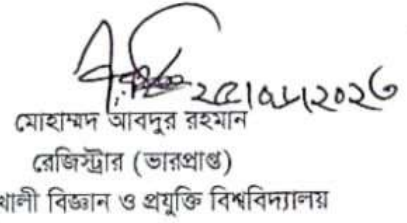 মোহাম্মদ আবদুর রহমান
রেজিস্ট্রার (ভারপ্রাপ্ত)
খালী বিজ্ঞান ও প্রযুক্তি বিশ্ববিদ্যালয়